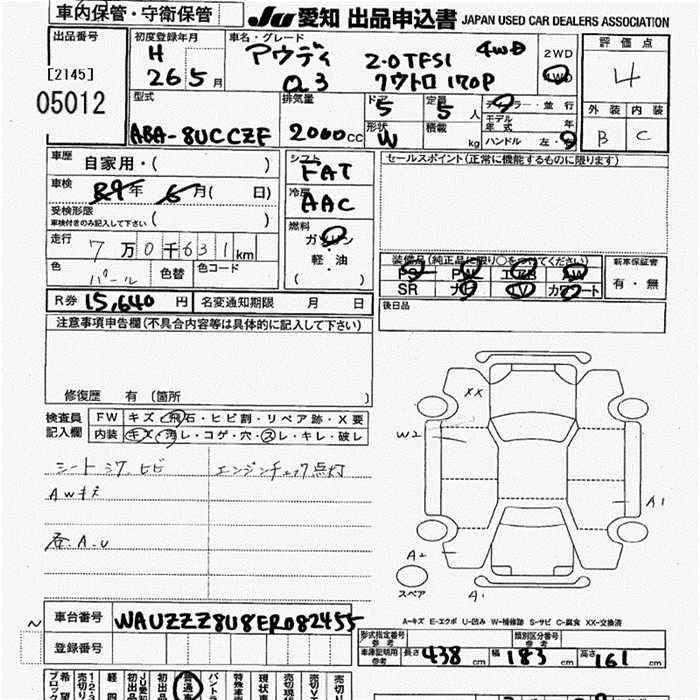 車内保管・守衛保管
JU 愛知 出品申込書 JAPAN USED CAR DEALERS ASSOCIATION
出品番号
[2145]
05012
初度登録年月
H
26 5 月
車名・グレード
アウディ 2.0TFSI 4WD
Q3 クワトロ 170P
2WD
4WD
評価点
4
外装 内装
B C
型式
ABA-8UCCZF
排気量
2000 cc
ドア
5
形状
W
定員
5 人
積載
kg
ディーラー・並行
モデル年式 年
ハンドル 左・右
車歴
自家用・( )
車検
R9年 6月( 日)
受検形態
車検付きのみ記入して下さい ( )
走行
7万0千631km
色
パール
色替
色コード
シフト
FAT
冷房
AAC
燃料
ガソリン
軽・油
( )
セールスポイント(正常に機能するものに限ります)
装備品(純正品に限り○をつけてください)
PS PW エアB AW
SR ナビ TV カワシート
新車保証書
有・無
R券 15,640 円
名変通知期限 月 日
後日品
注意事項申告欄(不具合内容等は具体的に記入して下さい)
修復歴 有 (箇所 )
検査員
記入欄
FW キズ・飛石・ヒビ割・リペア跡・X要
内装 キズ・汚レ・コゲ・穴・スレ・キレ・破レ
シート シワ ヒビ エンジンチェック点灯
AWキズ
各A.U
XX
W2
A1
A2
A1
スペア
A-キズ E-エクボ U-凹み W-補修跡 S-サビ C-腐食 XX-交換済
車台番号
WAUZZZ8U8ER082455
登録番号
形式指定番号
参考
類別区分番号
参考
車庫証明用
参考
長さ 438 cm
幅 183 cm
高さ 161 cm